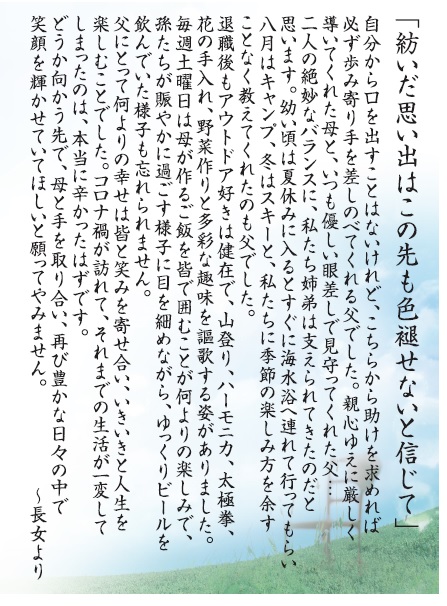 「紡いだ思い出はこの先も色褪せないと信じて」
自分から口を出すことはないけれど、こちらから助けを求めれば
必ず歩み寄り手を差しのべてくれる父でした。親心ゆえに厳しく
導いてくれた母と、いつも優しい眼差しで見守ってくれた父…
二人の絶妙なバランスに、私たち姉弟は支えられてきたのだと
思います。幼い頃は夏休みに入るとすぐに海水浴へ連れて行ってもらい
八月はキャンプ、冬はスキーと、私たちに季節の楽しみ方を余す
ことなく教えてくれたのも父でした。
退職後もアウトドア好きは健在で、山登り、ハーモニカ、太極拳、
花の手入れ、野菜作りと多彩な趣味を謳歌する姿がありました。
毎週土曜日は母が作るご飯を皆で囲むことが何よりの楽しみで、
孫たちが賑やかに過ごす様子に目を細めながら、ゆっくりビールを
飲んでいた様子も忘れられません。
父にとって何よりの幸せは皆と笑みを寄せ合い、いきいきと人生を
楽しむことでした。コロナ禍が訪れて、それまでの生活が一変して
しまったのは、本当に辛かったはずです。
どうか向かう先で、母と手を取り合い、再び豊かな日々の中で
笑顔を輝かせていてほしいと願ってやみません。
～長女より